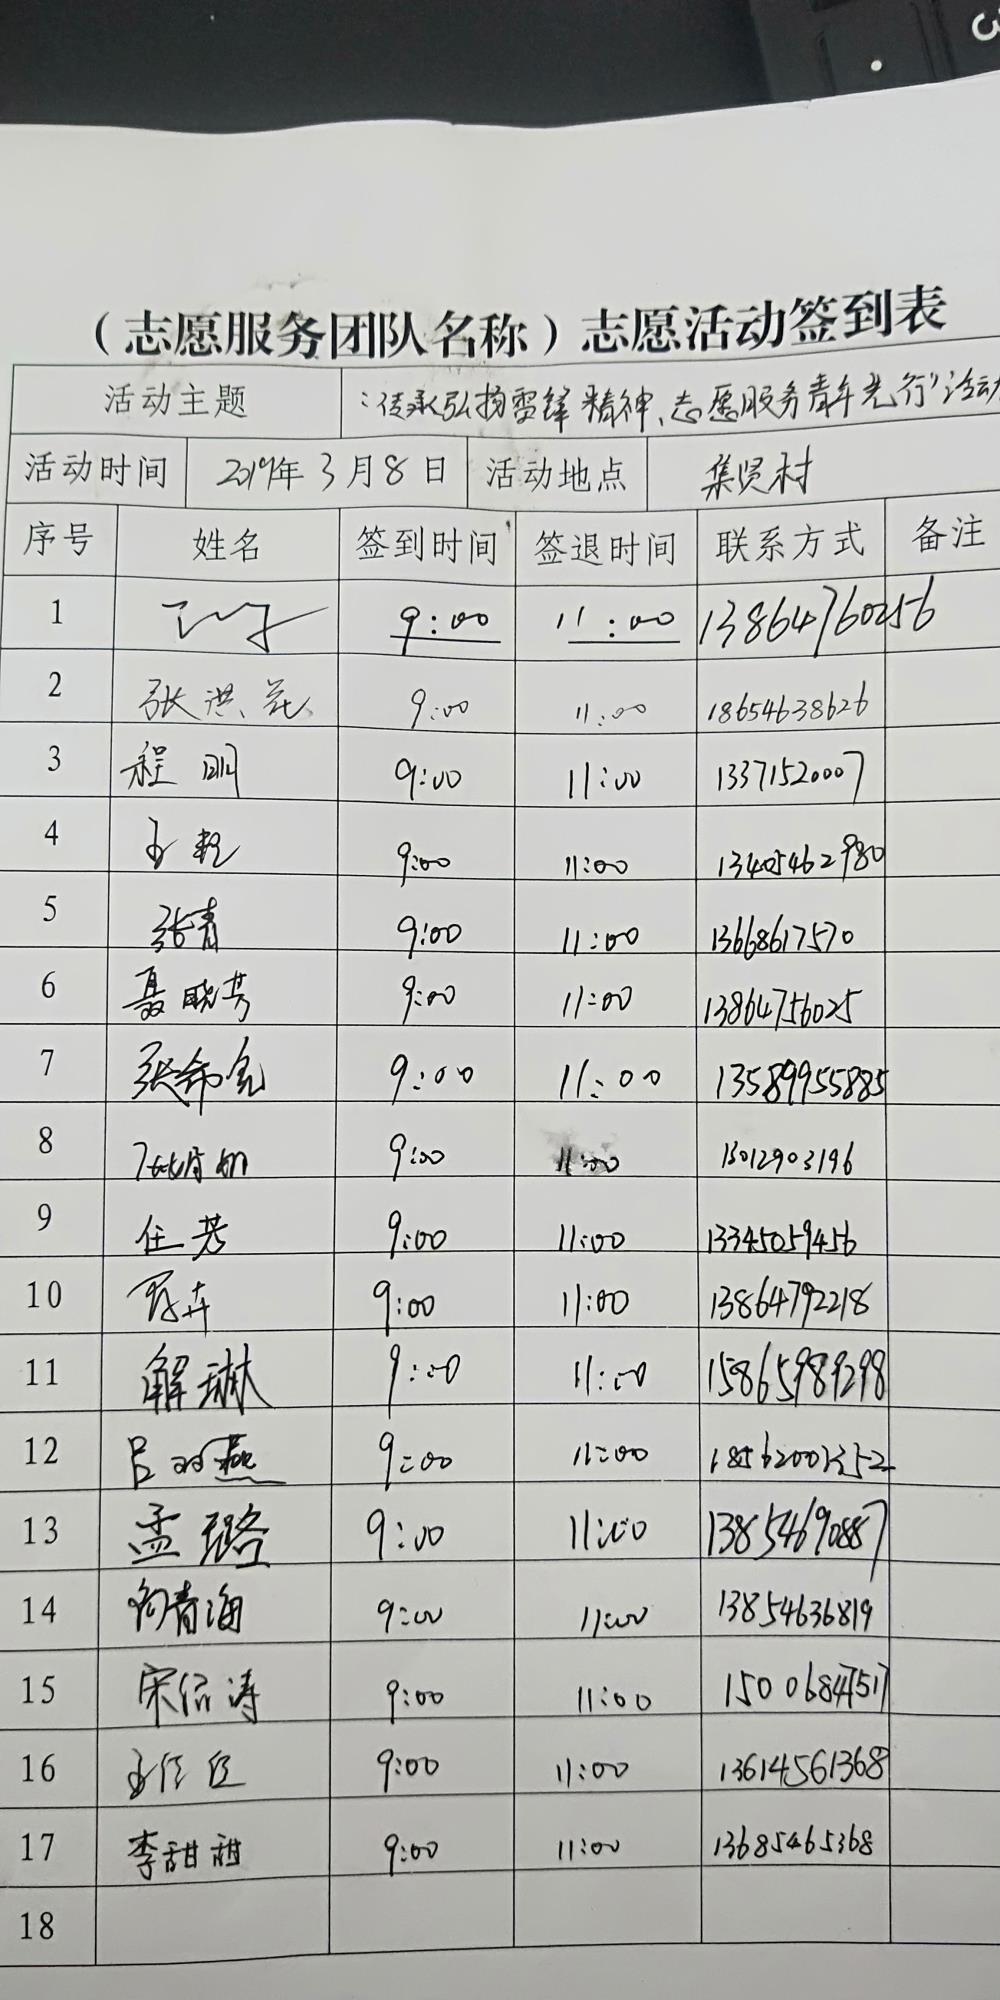 （志愿服务团队名称）志愿活动签到表
活动主题 "传承弘扬雷锋精神、志愿服务青年先行"活动
活动时间 2019年3月8日 活动地点 集贤村
序号 姓名 签到时间 签退时间 联系方式 备注
1 9:00 11:00 13864760256
2 张洪花 9:00 11:00 18654638626
3 程明 9:00 11:00 13371520007
4 9:00 11:00 13405462980
5 张青 9:00 11:00 13668617570
6 聂晓芳 9:00 11:00 13864756025
7 9:00 11:00 13589955885
8 9:00 11:00 13012903196
9 任芳 9:00 11:00 13345059456
10 9:00 11:00 13864792218
11 解琳 9:00 11:00 15865989298
12 9:00 11:00
13 孟璐 9:00 11:00 13854690887
14 向青海 9:00 11:00 13854636819
15 9:00 11:00 15006847517
16 9:00 11:00 13614561368
17 李甜甜 9:00 11:00 13685465368
18